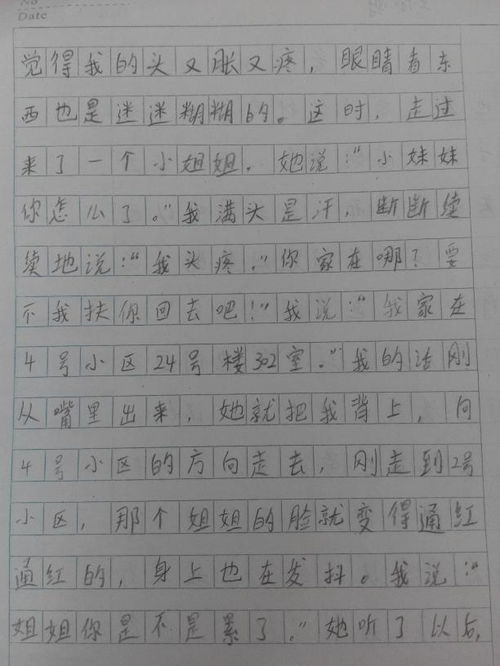 No
Date
觉得我的头又胀又疼，眼睛看东
西也是迷迷糊糊的。这时，走过
来了一个小姐姐。她说：“小妹妹
你怎么了。”我满头是汗，断断续
续地说：“我头疼。”你家在哪？要
不我扶你回去吧！”我说：“我家在
4号小区24号楼302室。”我的话刚
从嘴里出来，她就把我背上，向
4号小区的方向走去，刚走到2号
小区，那个姐姐的脸就变得通红
通红的，身上也在发抖。我说：“
姐姐你是不是累了。”她听了以后，